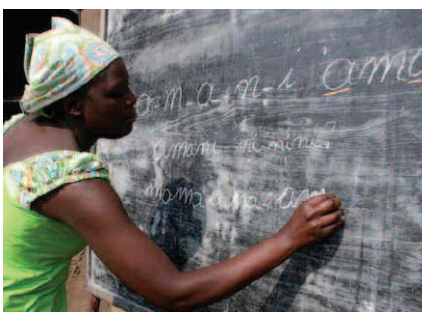 a-m-a-n-i ama
amani ni nini?
mama ana am